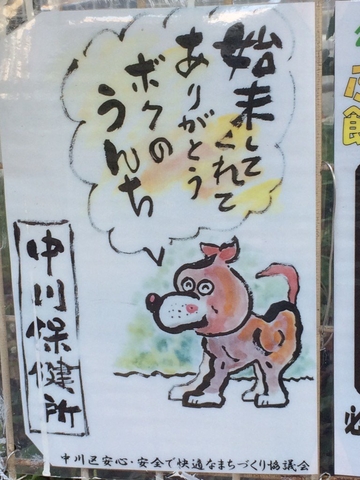 始末してくれて
ありがとう
ボクの
うんち
中川保健所
中川区安心・安全で快適なまちづくり協議会